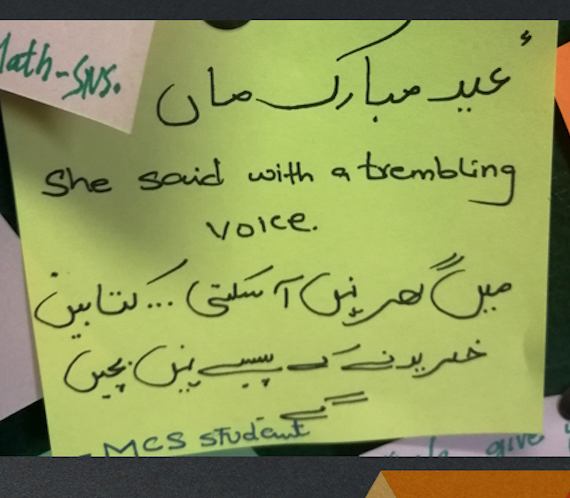 Math-SNS.
عید مبارک ماں
She said with a trembling
voice.
میں گھر نہیں آ سکتی ... کتابیں
خریدنے کے پیسے نہیں بچیں
گے
- MCS student
give